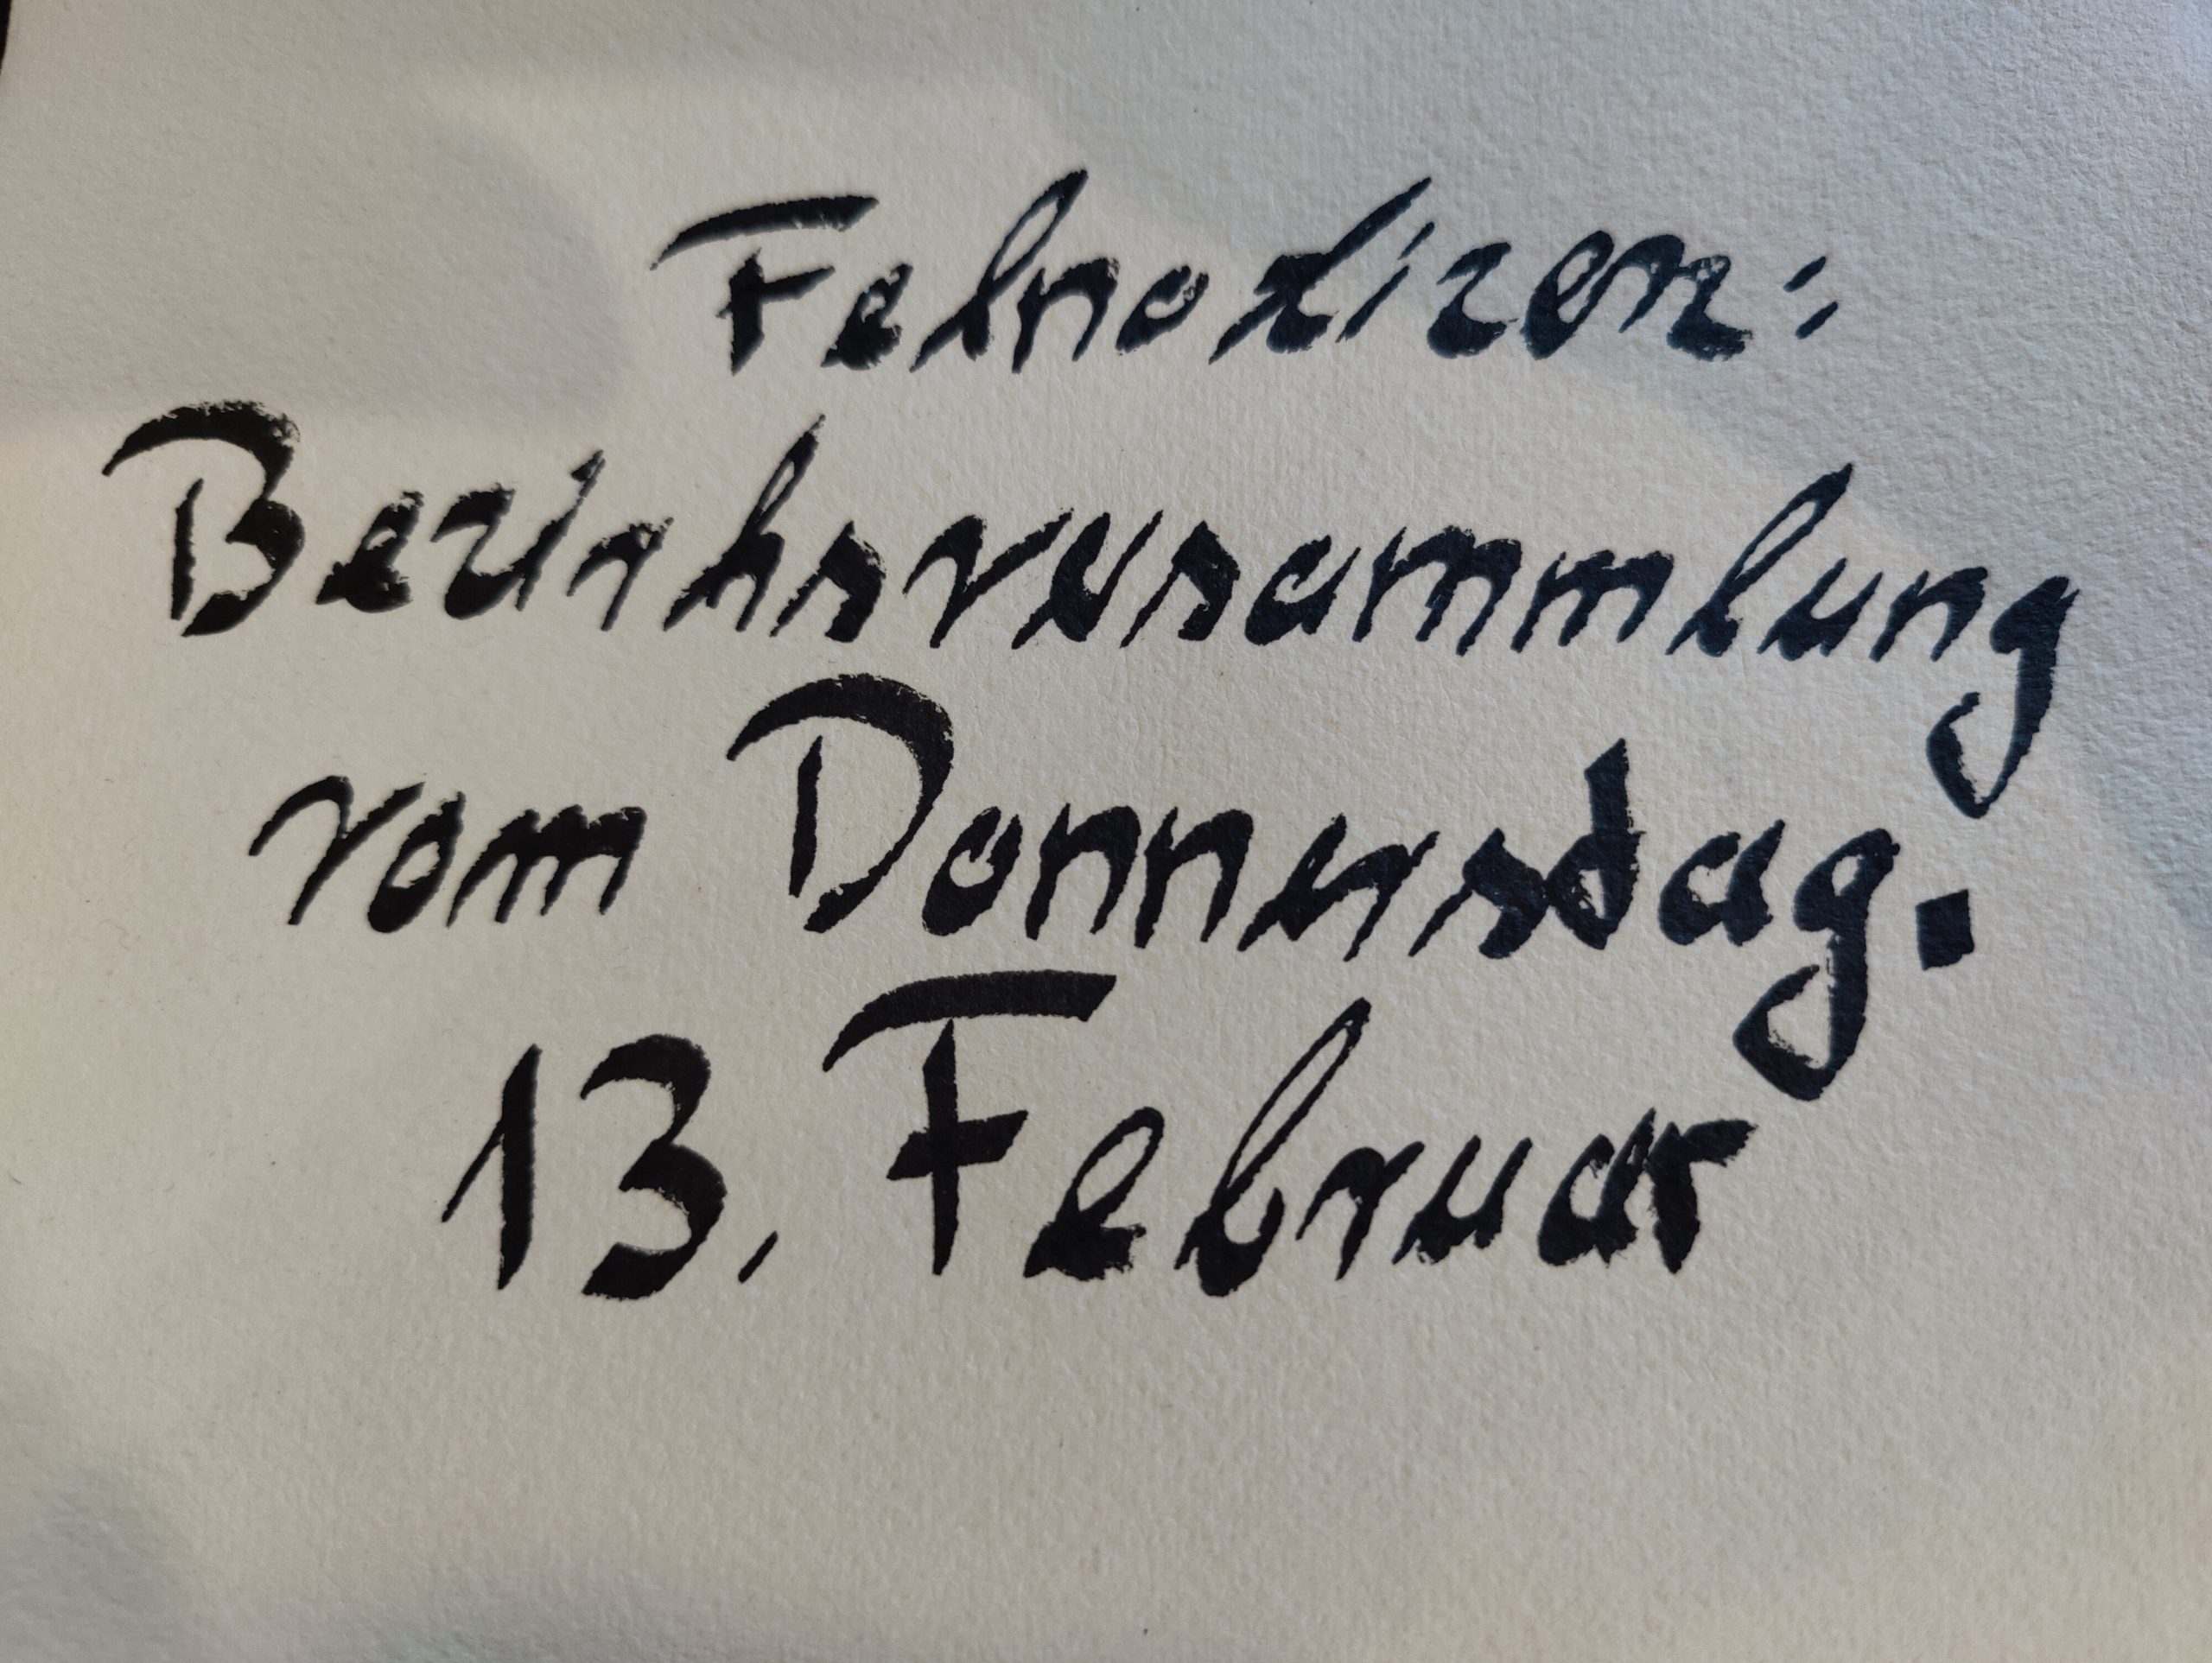 Felnotizen:
Bezirksversammlung
vom Donnerstag.
13. Februar